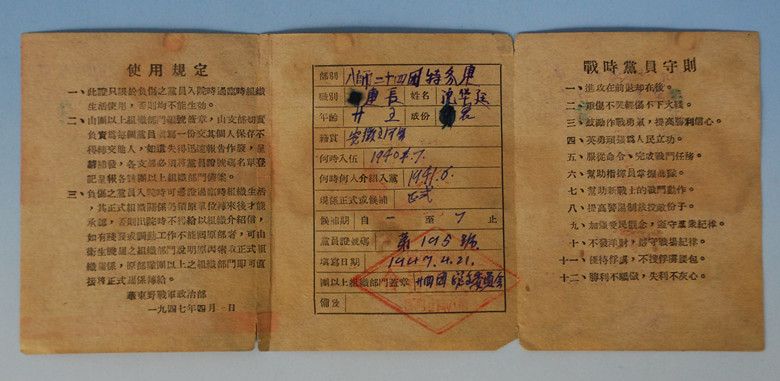 使用規定
一、此證只限於負傷之黨員入院時過臨時組織
生活使用，否則均不能生效。
二、由團以上組織部門編號簽章，由支部切實
負責為每個黨員填寫一份交其個人保存不
得轉交他人，如遺失得迅速報告作廢，呈
請補發，各支部必須將黨員證號碼名單登
記呈報各該團以上組織部門備案。
三、負傷之黨員入院時可憑證過臨時組織生活
，其正式組織關係仍須原單位轉來後才能
承認，否則出院時不得給以組織介紹信，
如有殘廢或調動工作不能回原部者，可由
衛生機關之組織部門說明原因索取正式組
織關係，原部隊團以上之組織部門即可直
接將正式關係轉給。
華東野戰軍政治部
一九四七年四月 日
部別 八師二十四團特務連
級別 連長 姓名 沈學廷
年齡 廿五 成份
籍貫 安徽
何時入伍 1940年7.
何時何人介紹入黨 1941.6.
現係正式或候補 正式
候補期 自 至 止
黨員證號碼 第195號
填寫日期 1947.4.21.
團以上組織部門蓋章 廿四團 委員會
備考
戰時黨員守則
一、進攻在前退却在後。
二、輕傷不哭輕傷不下火綫。
三、鼓勵作戰勇氣，提高勝利信心。
四、英勇頑強為人民立功。
五、服從命令、完成戰鬥任務。
六、幫助指揮員掌握部隊。
七、幫助新戰士的戰鬥動作。
八、提高警惕制裁投敵份子。
九、加強愛民觀念，遵守羣衆紀律。
十、不發洋財，遵守戰塲紀律。
十一、優待俘虜，不搜俘虜腰包。
十二、勝利不驕傲，失利不灰心。